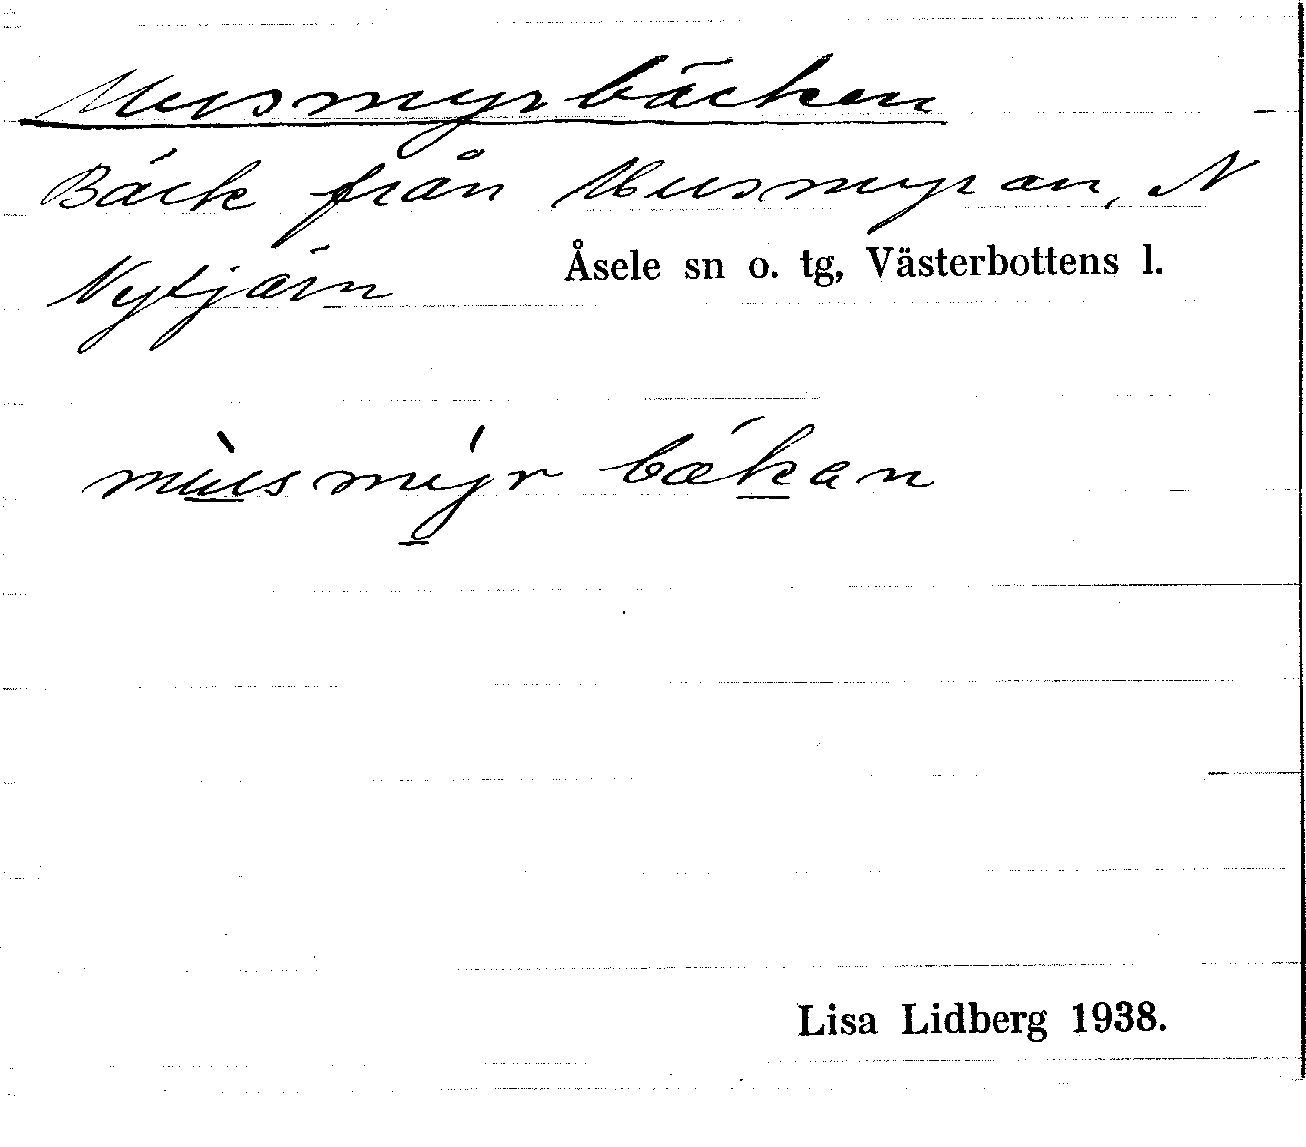 Musmyrbäcken
Bäck från Musmyran, N
Nytjärn
Åsele sn o. tg, Västerbottens l.
mùsmýr bækan
Lisa Lidberg 1938.